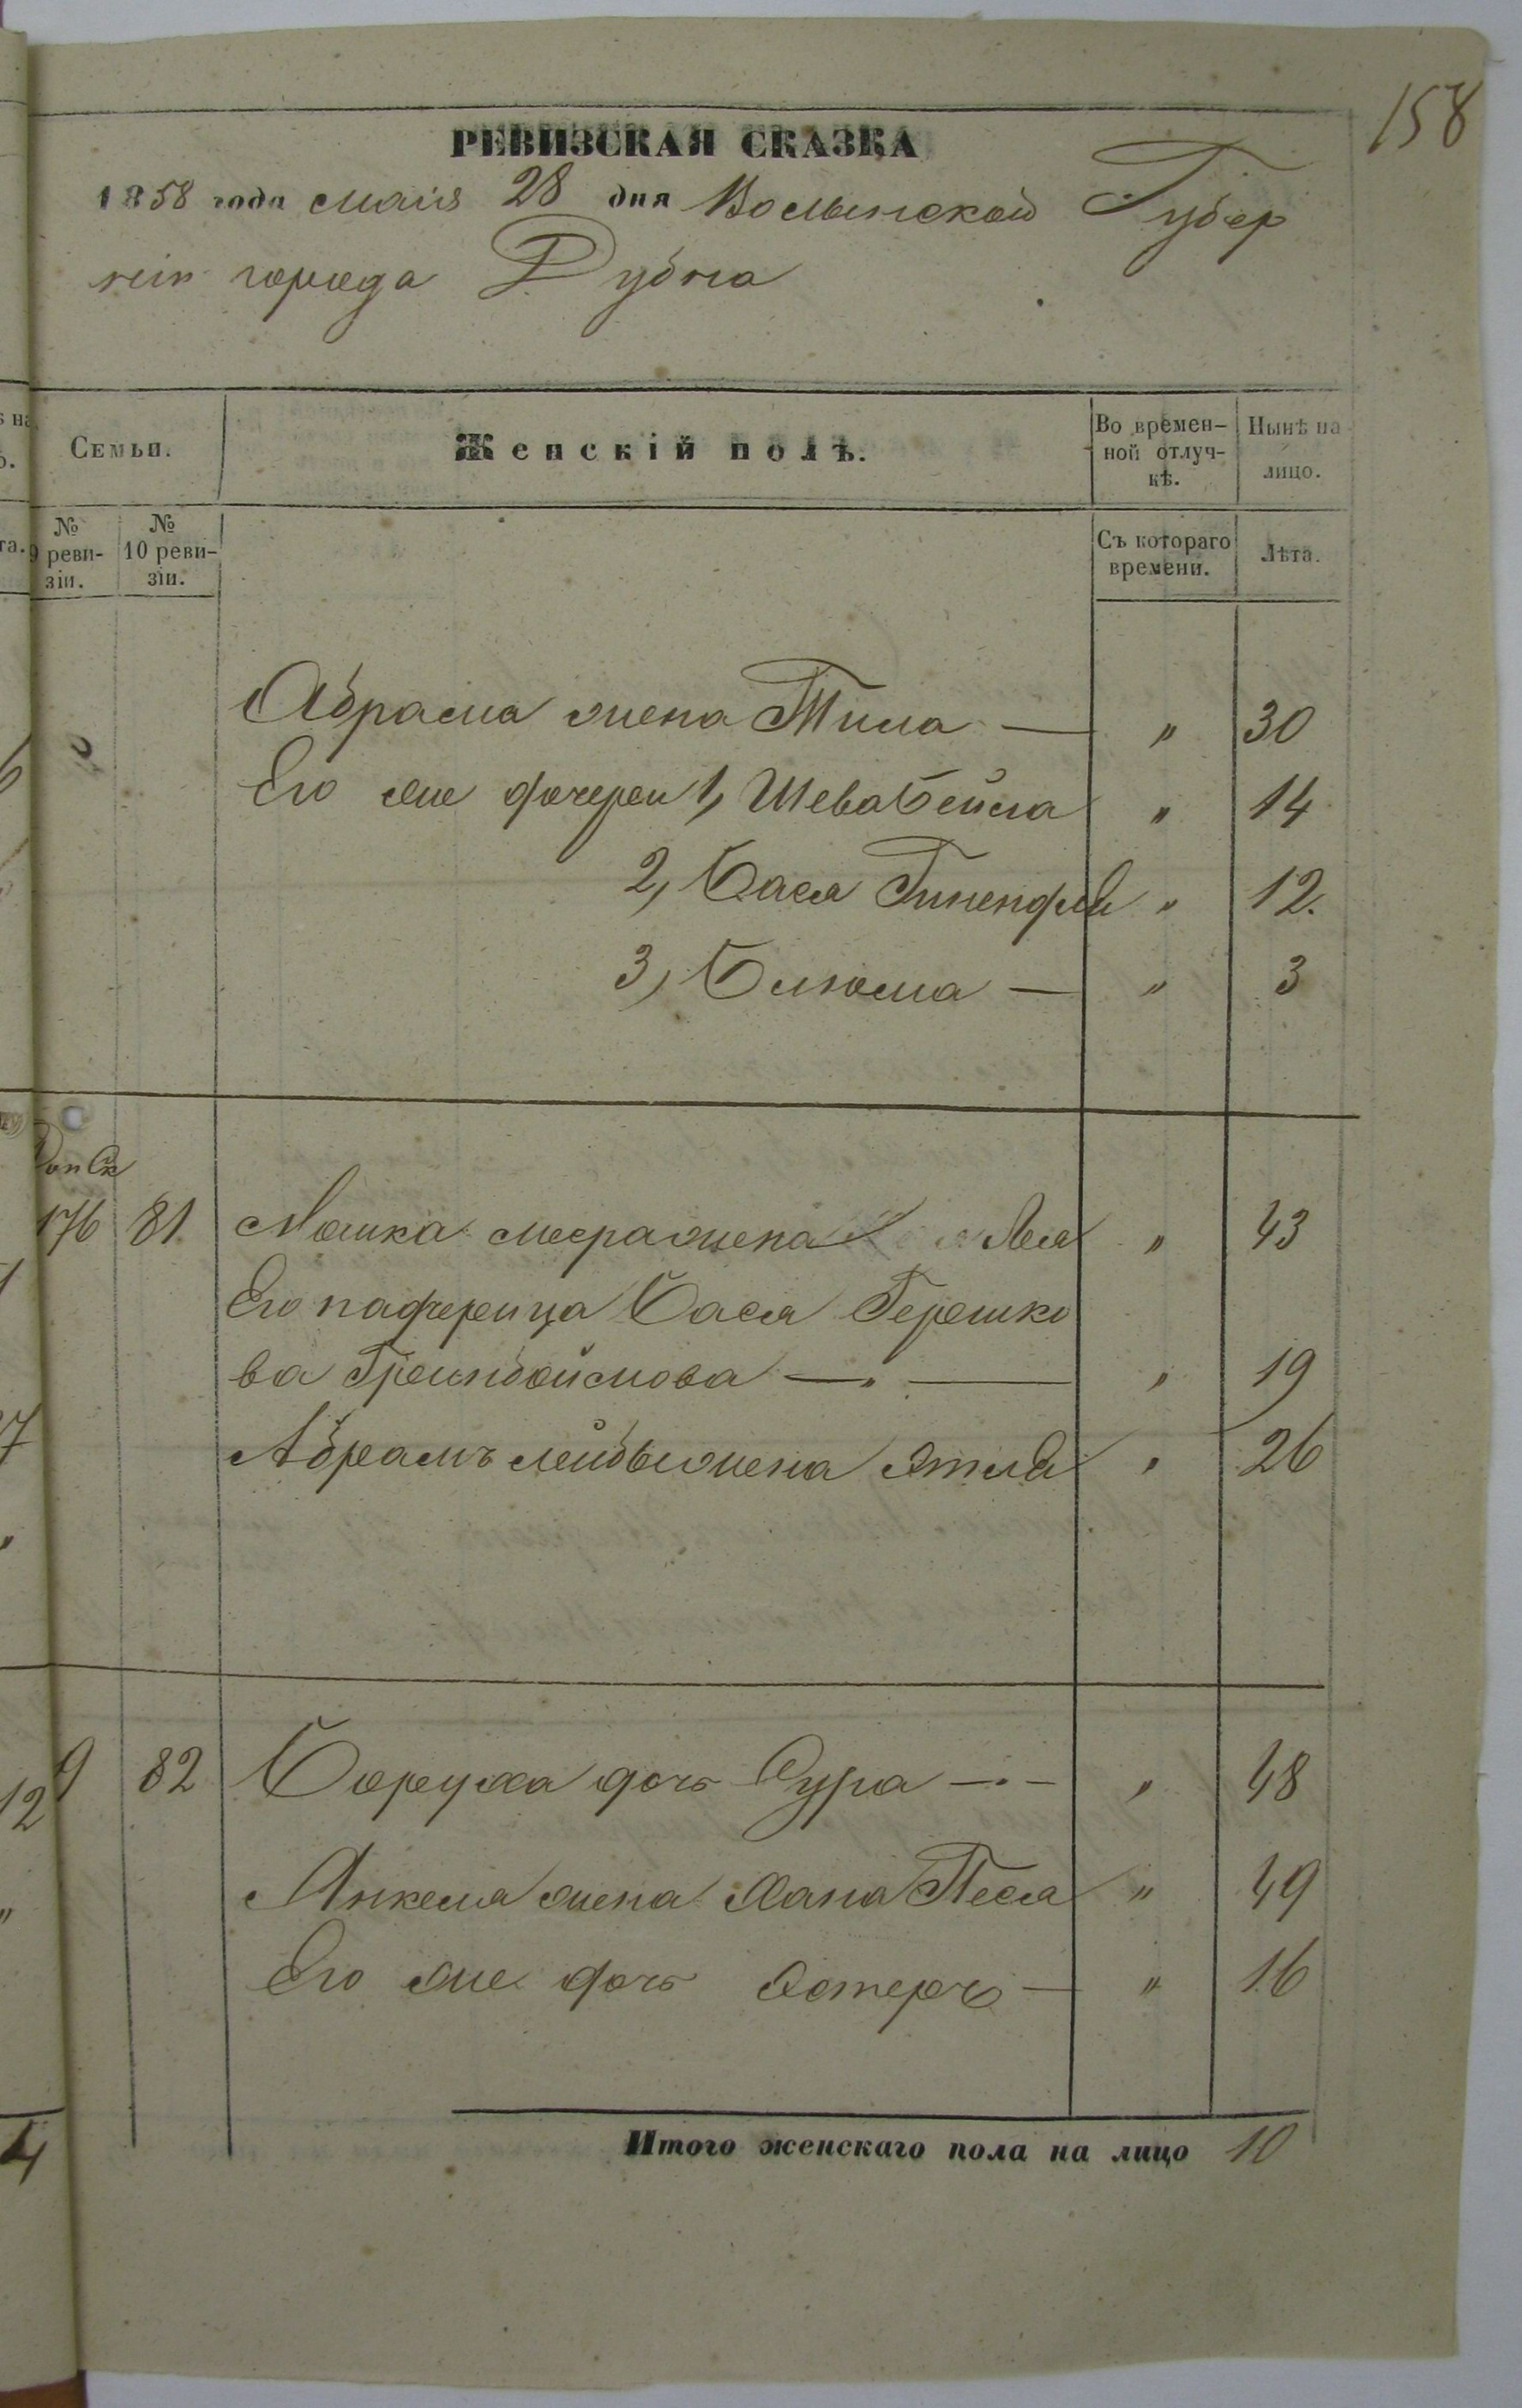 158
РЕВИЗСКАЯ СКАЗКА
1858 года маія 28 дня Волынской Губер
ніи города Дубна
Семьи.
Женскій полъ.
Во времен-
ной отлуч-
кѣ.
Нынѣ на
лицо.
№
9 реви-
зіи.
№
10 реви-
зіи.
Съ котораго
времени.
Лѣта.
Абрама жена Тила — " 30
Его же дочери 1, Шева Бейла " 14
2, Бася Гинендля " 12.
3, Блюма — " 3
Доп Ск
176 81 Мошка меера жена Лея " 43
Его падчерица Бася Герешко
ва Гренбоймова — " 19
Абрамъ лейбы жена Этля " 26
9 82 Боруха дочь Сура — " 48
Янкеля жена Хана Песя " 49
Его же дочь Эстеръ — " 16
Итого женскаго пола на лицо 10